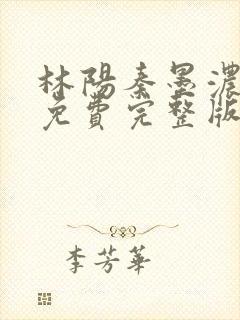 林陽秦墨濃
免費完整版
李芳華